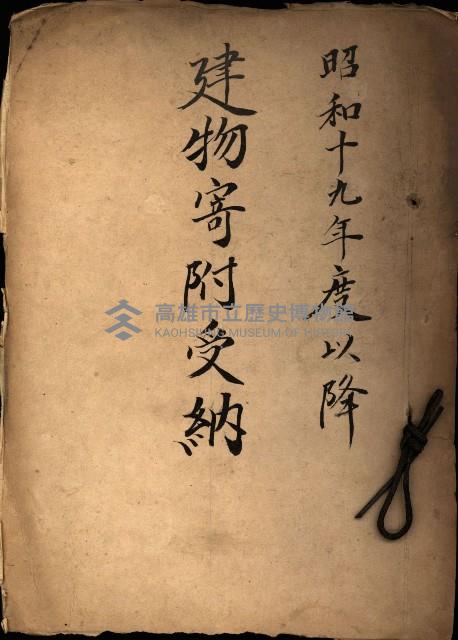 昭和十九年度以降
建物寄附受納
高雄市立歷史博物館
KAOHSIUNG MUSEUM OF HISTORY